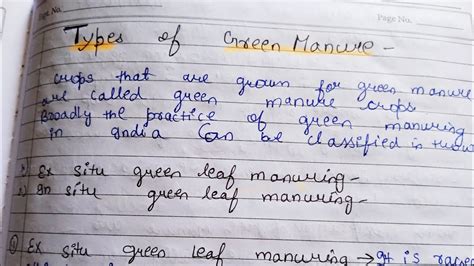 Page No.
Types of Green Manure -
crops that are grown for green manure
are called green manure crops
Broadly the practice of green manuring
in India can be classified in
Ex situ green leaf manuring -
In situ green leaf manuring -
Ex situ green leaf manuring → It is